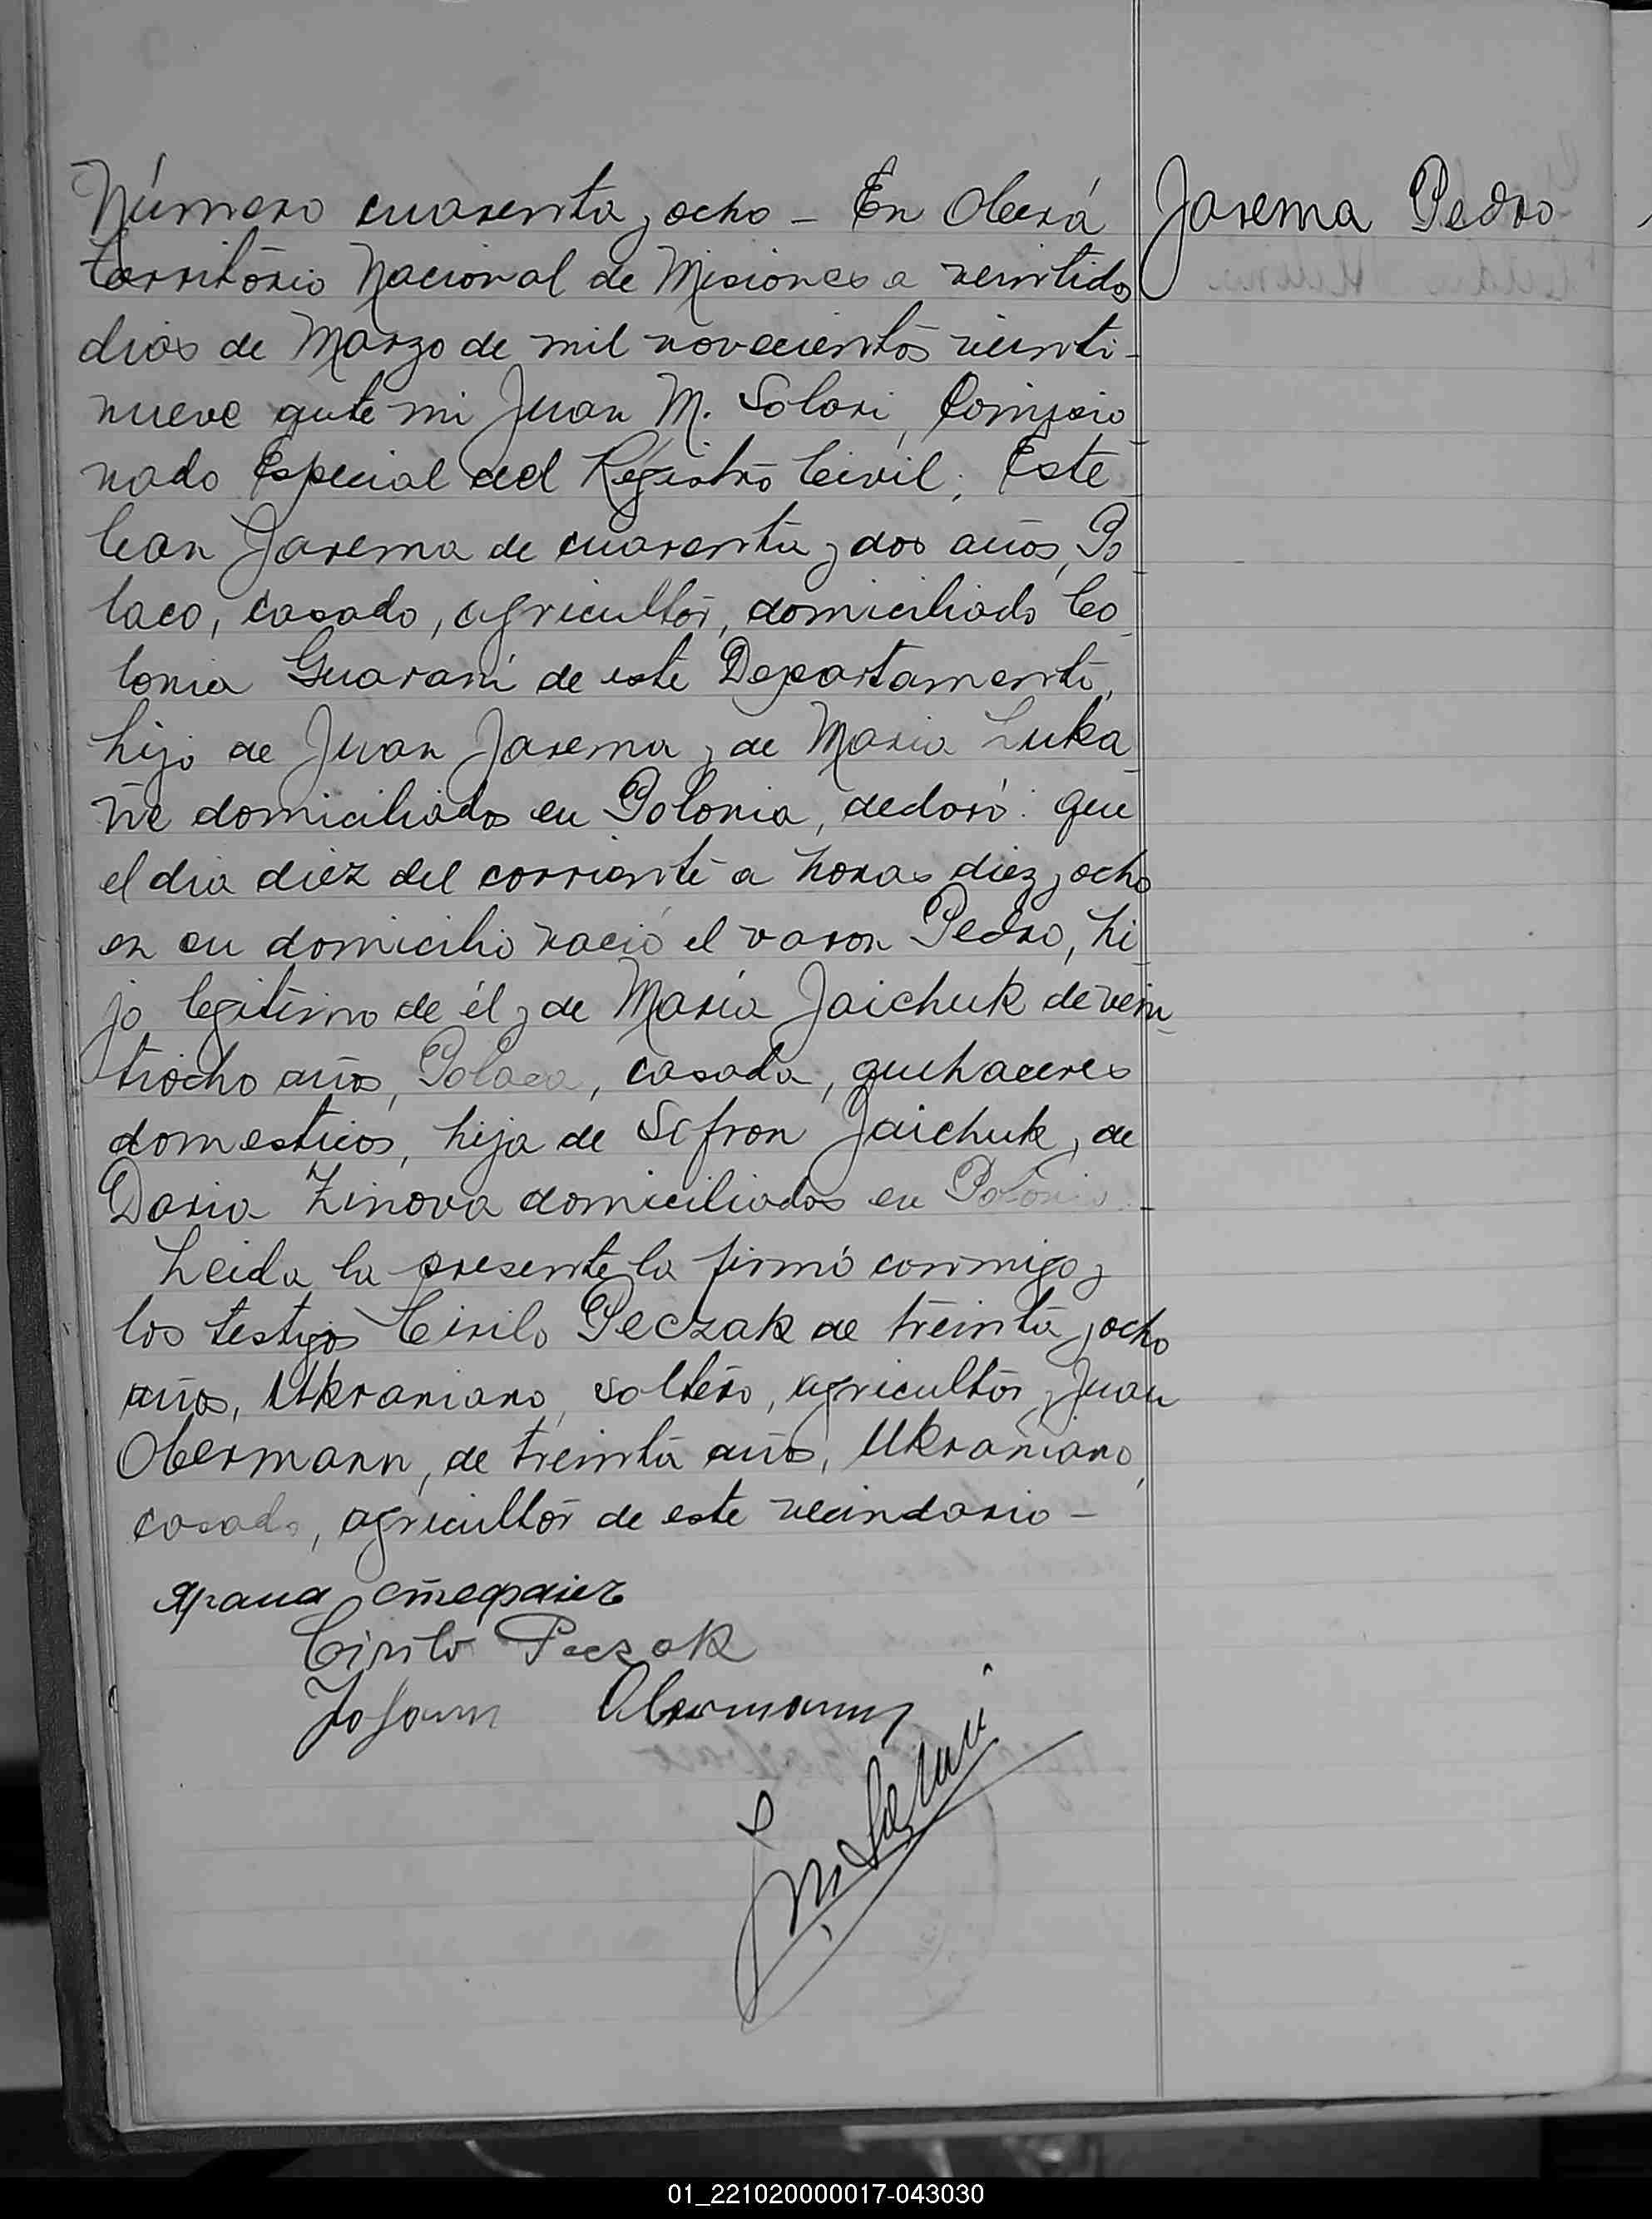 Número cuarenta y ocho - En Oberá
Jarema Pedro
territorio Nacional de Misiones a veintidos
dias de Marzo de mil novecientos veinti-
nueve ante mi Juan M. Solari, Comisio
nado Especial del Registro Civil; Este
ban Jarema de cuarenta y dos años, Po
laco, casado, agricultor, domiciliado Co
lonia Guaraní de este Departamento,
hijo de Juan Jarema y de Maria Luka
ñe domiciliados en Polonia, declaró: que
el dia diez del corriente a horas diez y ocho
en su domicilio nació el varon Pedro, hi
jo legitimo de él y de María Jaichuk de vein
tiocho años, Polaca, casada, quehaceres
domesticos, hija de Sofron Jaichuk y de
Daria Zinova domiciliados en Polonia.
Leida la presente la firmó conmigo y
los testigos Cirilo Peczak de treinta y ocho
años, Ukraniano, soltero, agricultor y Juan
Obermann, de treinta años, Ukraniano,
casado, agricultor de este vecindario -
Cirilo Peczak
Johann Obermann
J M Solari
01_221020000017-043030